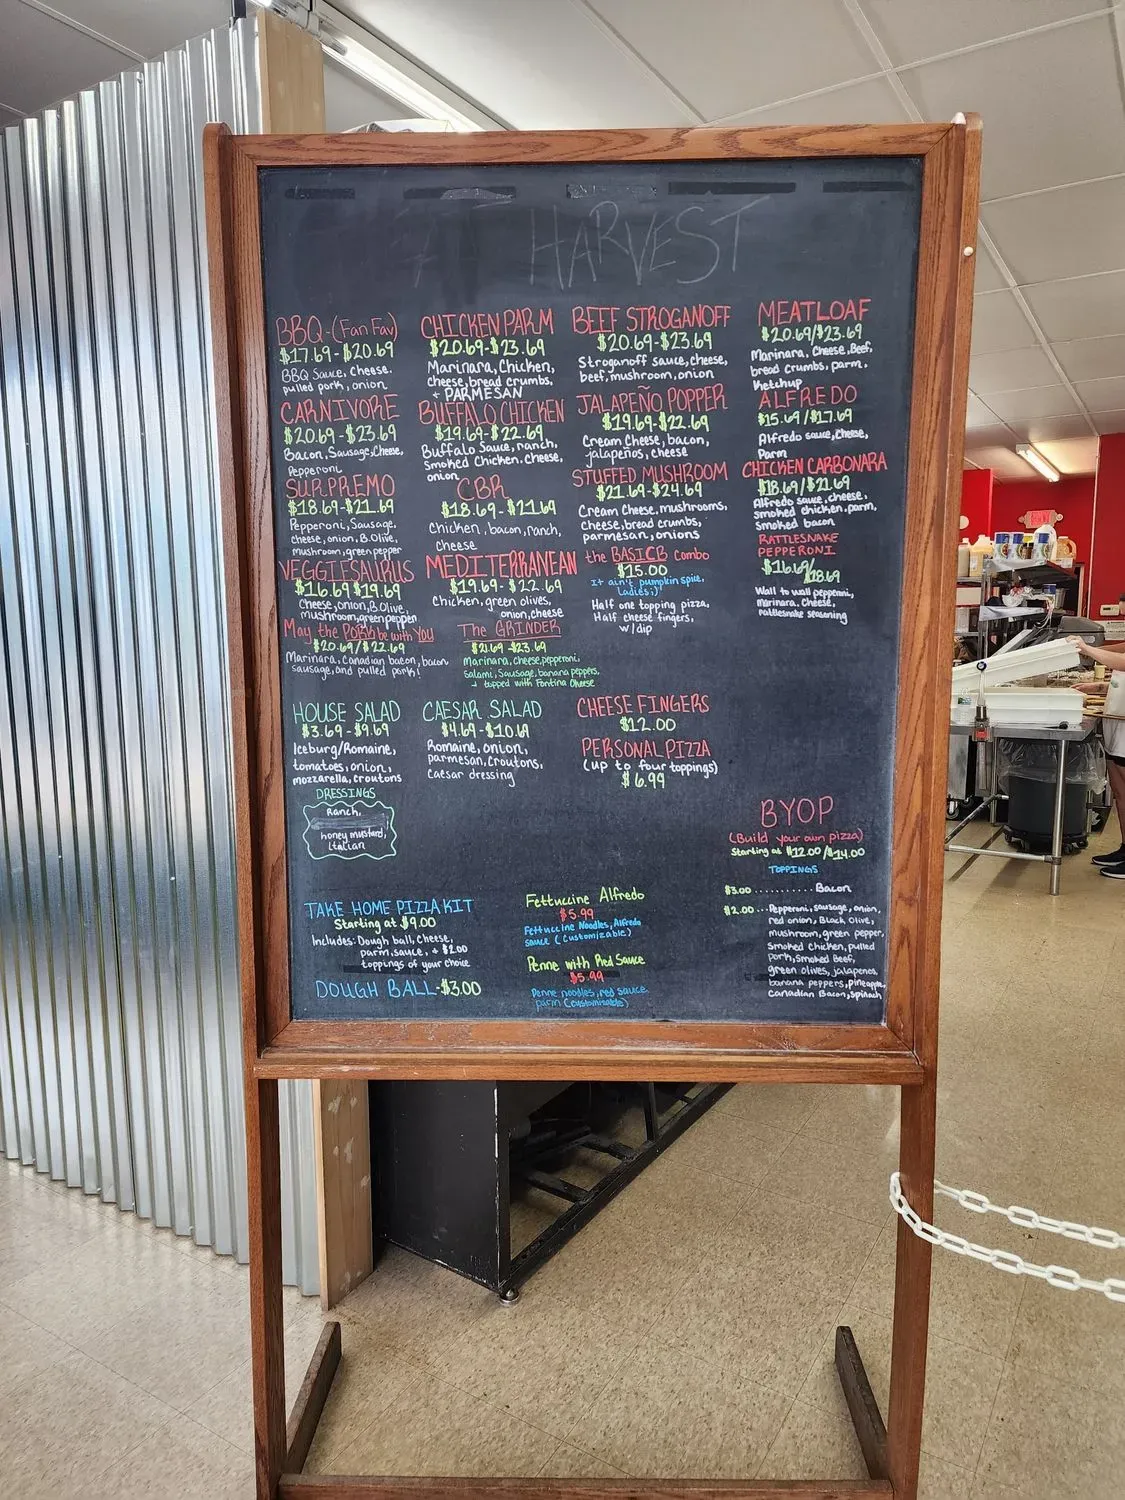 HARVEST
BBQ-(Fan Fav)
$17.69-$20.69
BBQ Sauce, Cheese,
pulled pork, onion
CARNIVORE
$20.69-$23.69
Bacon, Sausage, Cheese,
Pepperoni
SURPREMO
$18.69-$21.69
Pepperoni, Sausage,
Cheese, onion, B.Olive,
mushroom, green pepper
VEGGIESAURUS
$16.69 $19.69
Cheese, onion, B.Olive,
mushroom, green pepper
May the PORK be with You
$20.69/$22.69
Marinara, Canadian bacon, bacon
sausage, and pulled pork!
CHICKEN PARM
$20.69-$23.69
Marinara, Chicken,
cheese, bread crumbs,
+ PARMESAN
BUFFALO CHICKEN
$19.69-$22.69
Buffalo Sauce, ranch,
Smoked Chicken, Cheese,
onion
CBR
$18.69-$21.69
Chicken, bacon, ranch,
Cheese
MEDITERRANEAN
$19.69-$22.69
Chicken, green olives,
onion, cheese
The GRINDER
$21.69-$23.69
Marinara, cheese, pepperoni,
Salami, Sausage, banana peppers,
+ topped with Fontina Cheese
BEEF STROGANOFF
$20.69-$23.69
Stroganoff sauce, cheese,
beef, mushroom, onion
JALAPEÑO POPPER
$19.69-$22.69
Cream Cheese, bacon,
jalapeños, cheese
STUFFED MUSHROOM
$21.69-$24.69
Cream Cheese, mushrooms,
Cheese, bread crumbs,
parmesan, onions
the BASICB combo
$15.00
It ain't pumpkin spice,
Ladies;)
Half one topping pizza,
Half cheese fingers,
w/dip
MEATLOAF
$20.69/$23.69
Marinara, Cheese, Beef,
bread crumbs, parm,
Ketchup
ALFREDO
$15.69/$17.69
Alfredo sauce, Cheese,
Parm
CHICKEN CARBONARA
$18.69/$21.69
Alfredo sauce, cheese,
smoked chicken, parm,
Smoked bacon
RATTLESNAKE
PEPPERONI
$16.69/$18.69
Wall to wall pepperoni,
marinara, Cheese,
rattlesnake seasoning
HOUSE SALAD
$3.69-$9.69
Iceburg/Romaine,
tomatoes, onion,
mozzarella, croutons
DRESSINGS
Ranch,
honey mustard,
Italian
CAESAR SALAD
$4.69-$10.69
Romaine, onion,
parmesan, croutons,
Caesar dressing
CHEESE FINGERS
$12.00
PERSONAL PIZZA
(up to four toppings)
$6.99
BYOP
(Build your own pizza)
Starting at $12.00/$14.00
TOPPINGS
$3.00 ........... Bacon
$2.00 ... Pepperoni, sausage, onion,
red onion, Black Olive,
mushroom, green pepper,
Smoked Chicken, pulled
pork, Smoked Beef,
green olives, jalapenos,
banana peppers, pineapple,
Canadian Bacon, Spinach
TAKE HOME PIZZA KIT
Starting at $9.00
Includes: Dough ball, Cheese,
parm, sauce, + $2.00
toppings of your choice
DOUGH BALL-$3.00
Fettuccine Alfredo
$5.99
Fettuccine Noodles, Alfredo
sauce (Customizable)
Penne with Red Sauce
$5.99
Penne noodles, red sauce
parm (customizable)